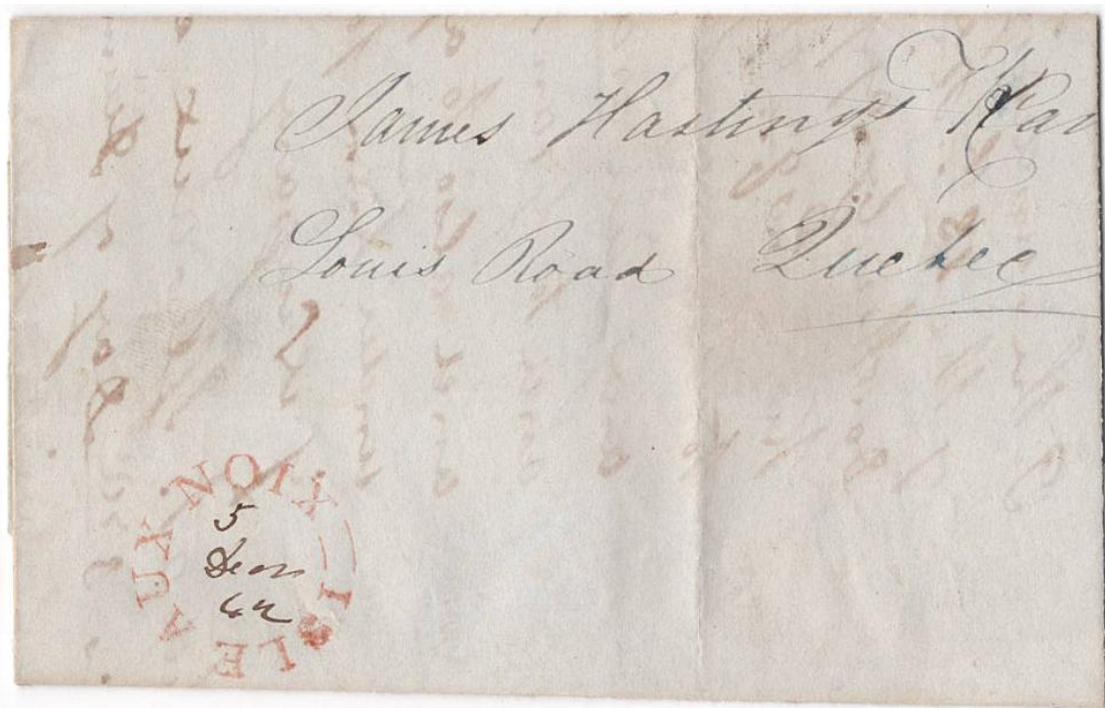 James Hastings
Louis Road Quebec
ISLE AUX NOIX
5
Decr
42